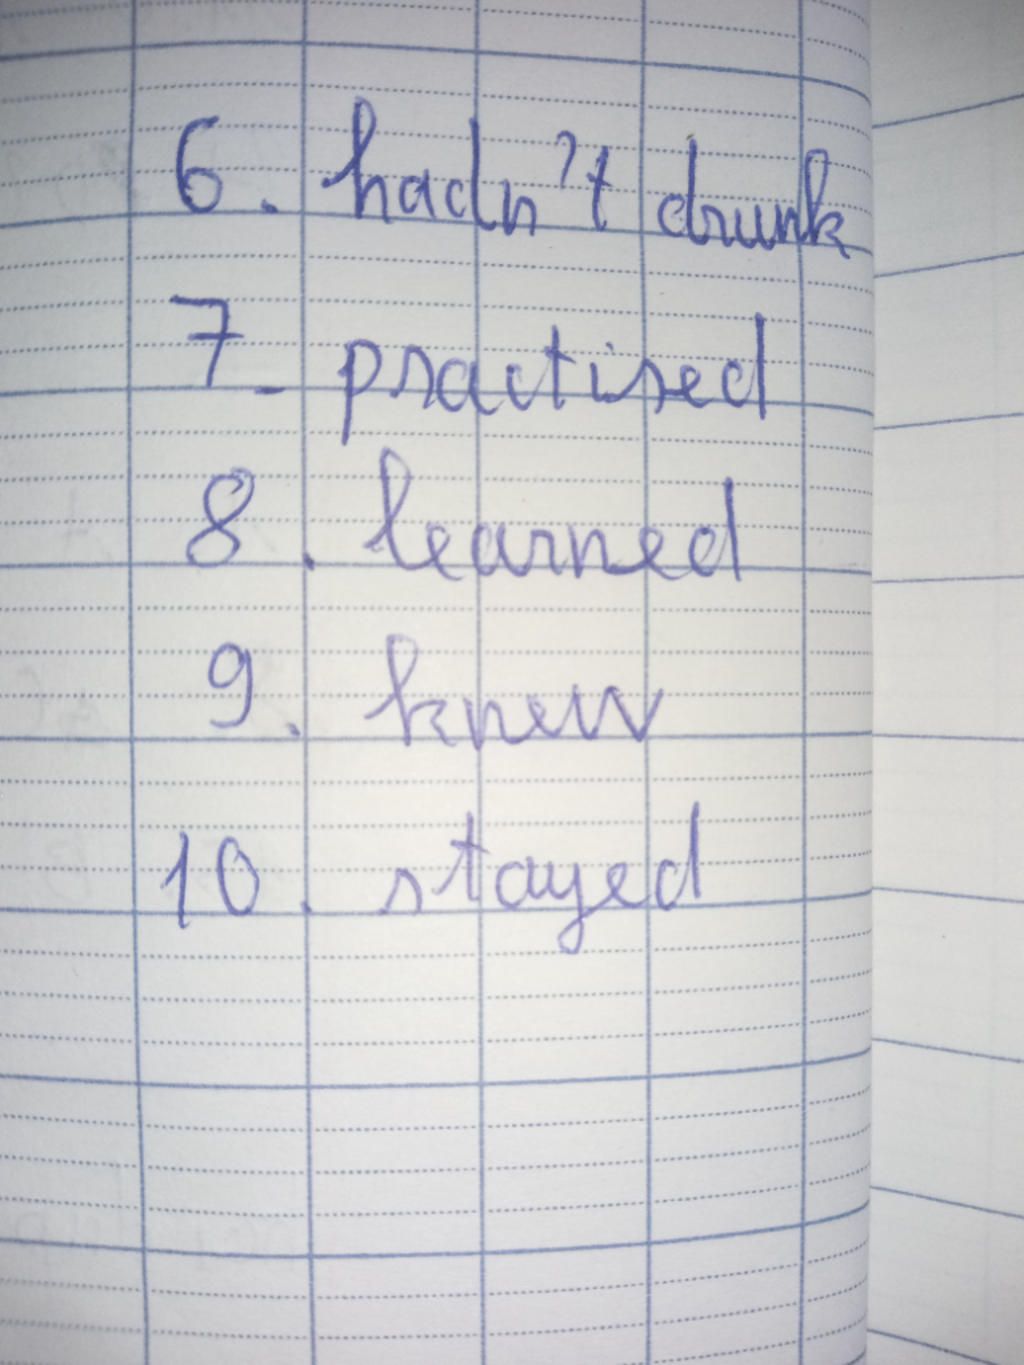 6. hadn't drunk
7. practised
8. learned
9. knew
10. stayed